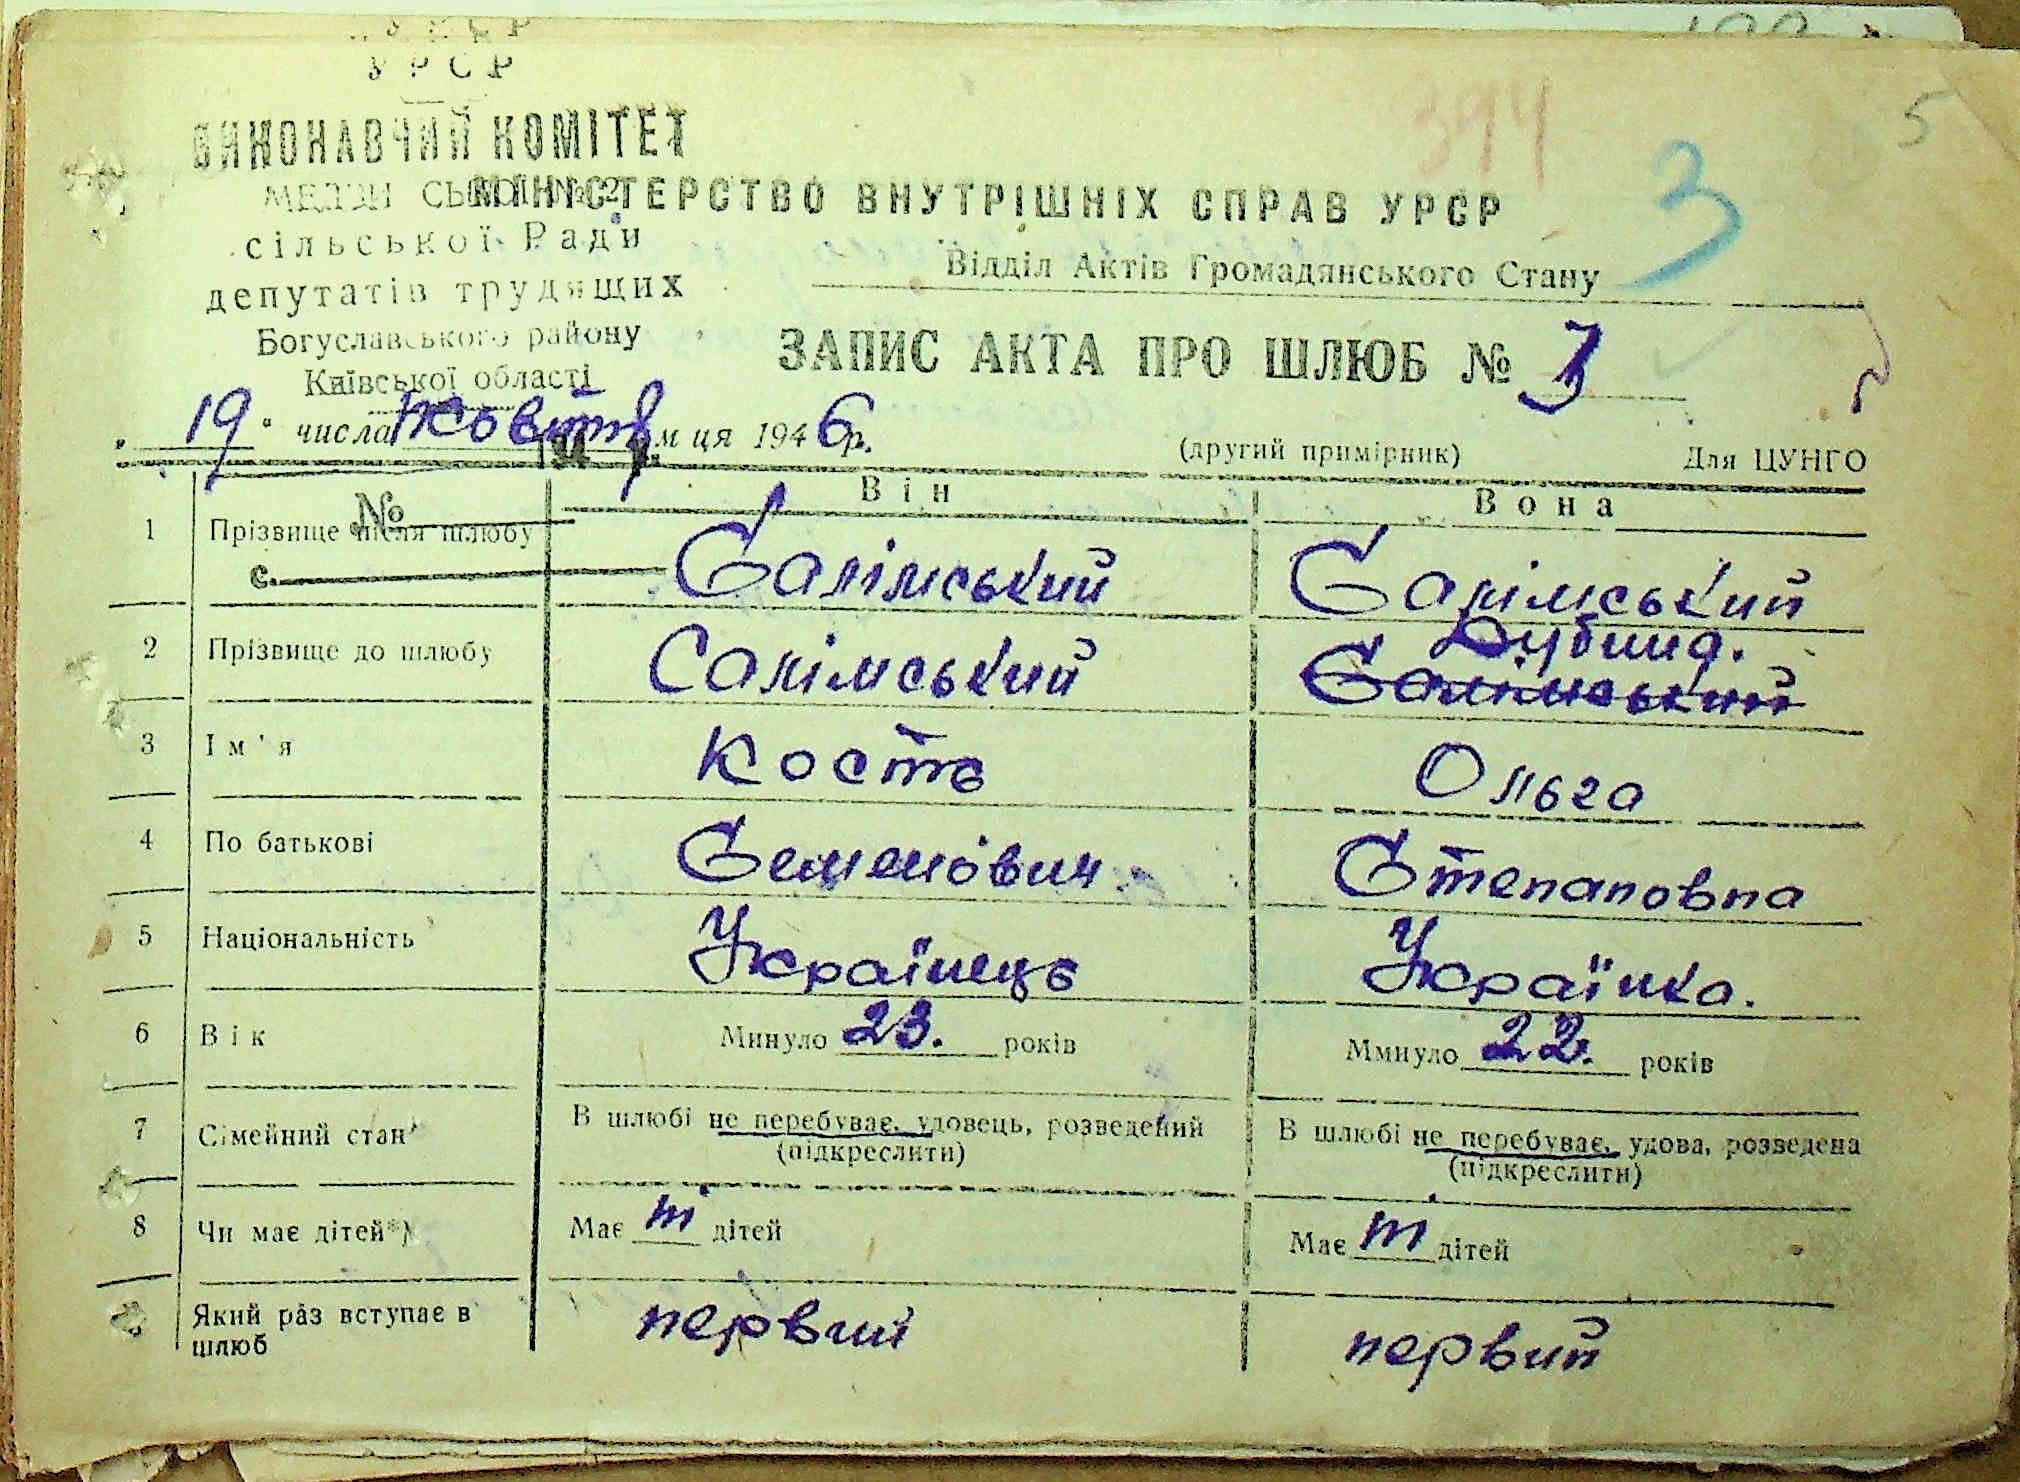 УРСР
ВИКОНАВЧИЙ КОМІТЕТ
сільської Ради
депутатів трудящих
Богуславського району
Київської області
394
3
5
МІНІСТЕРСТВО ВНУТРІШНІХ СПРАВ УРСР
Відділ Актів Громадянського Стану
ЗАПИС АКТА ПРО ШЛЮБ № 3
„19“ числа жовтня м ця 1946р.
(другий примірник) Для ЦУНГО
№
с.
Він Вона
1 Прізвище після шлюбу Салімський Салімський
2 Прізвище до шлюбу Салімський Дубина. Салімський
3 Ім'я Кость Ольга
4 По батькові Семенович Степановна
5 Національність Українець Українка.
6 Вік Минуло 23. років Ммнуло 22. років
7 Сімейний стан В шлюбі не перебуває, удовець, розведений (підкреслити) В шлюбі не перебуває, удова, розведена (підкреслити)
8 Чи має дітей*) Має ні дітей Має дітей
Який раз вступає в шлюб первий первий